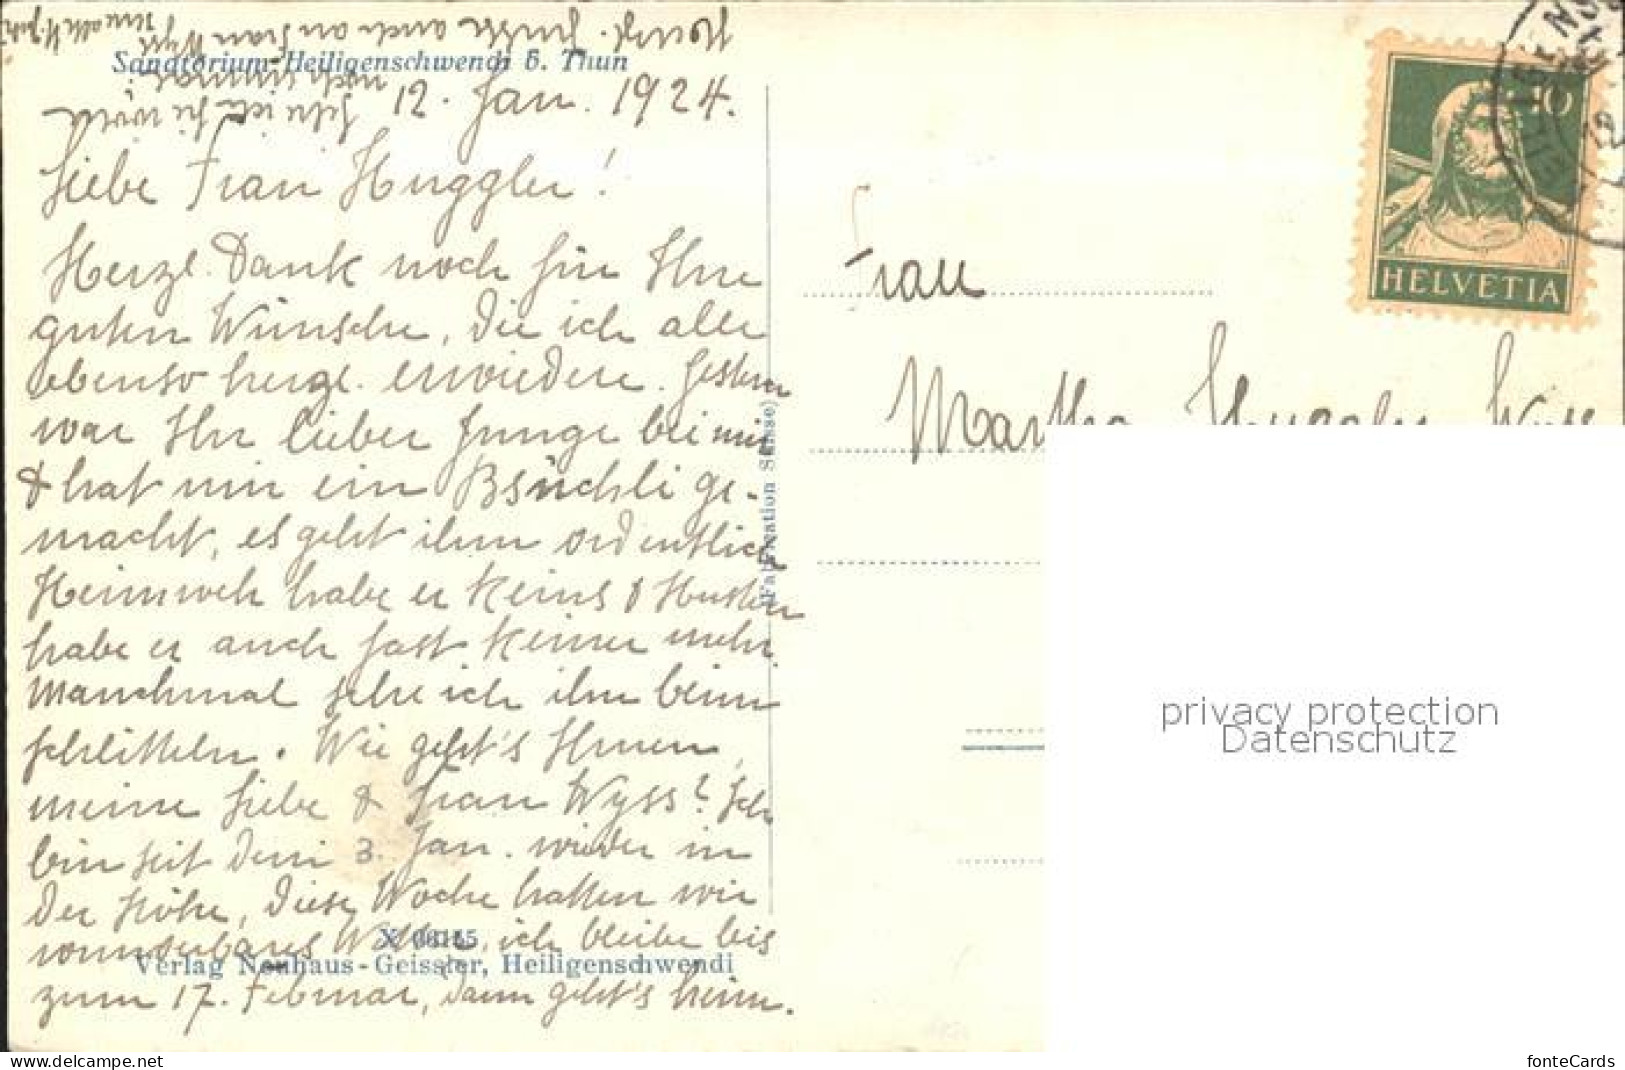 Sanatorium Heiligenschwendi b. Thun
12. Jan. 1924.
Liebe Frau Huggler!
Herzl. Dank noch für Ihre
guten Wünsche, die ich alle
ebenso herzl. erwiedere. Gestern
war Ihr lieber Junge bei mir
& hat mir ein Bsüchli ge-
macht, es geht ihm ordentlich
Heimweh habe er keins & Husten
habe er auch fast keinen mehr.
Manchmal sehe ich ihn beim
schlitteln. Wie geht's Ihnen,
meine Liebe & Frau Wyss? Ich
bin seit dem 3. Jan. wieder in
der Höhe, diese Woche hatten wir
wunderbares Wetter, ich bleibe bis
zum 17. Februar, dann geht's heim.
Herzl. Grüsse auch an Frau Wyss
noch einmal?
Sehe ich Sie wohl
X 06165
Verlag Neuhaus-Geissler, Heiligenschwendi
Fabrication Suisse)
HELVETIA
10
Frau
Martha Huggler Wyss
privacy protection
Datenschutz
www.delcampe.net
fonteCards